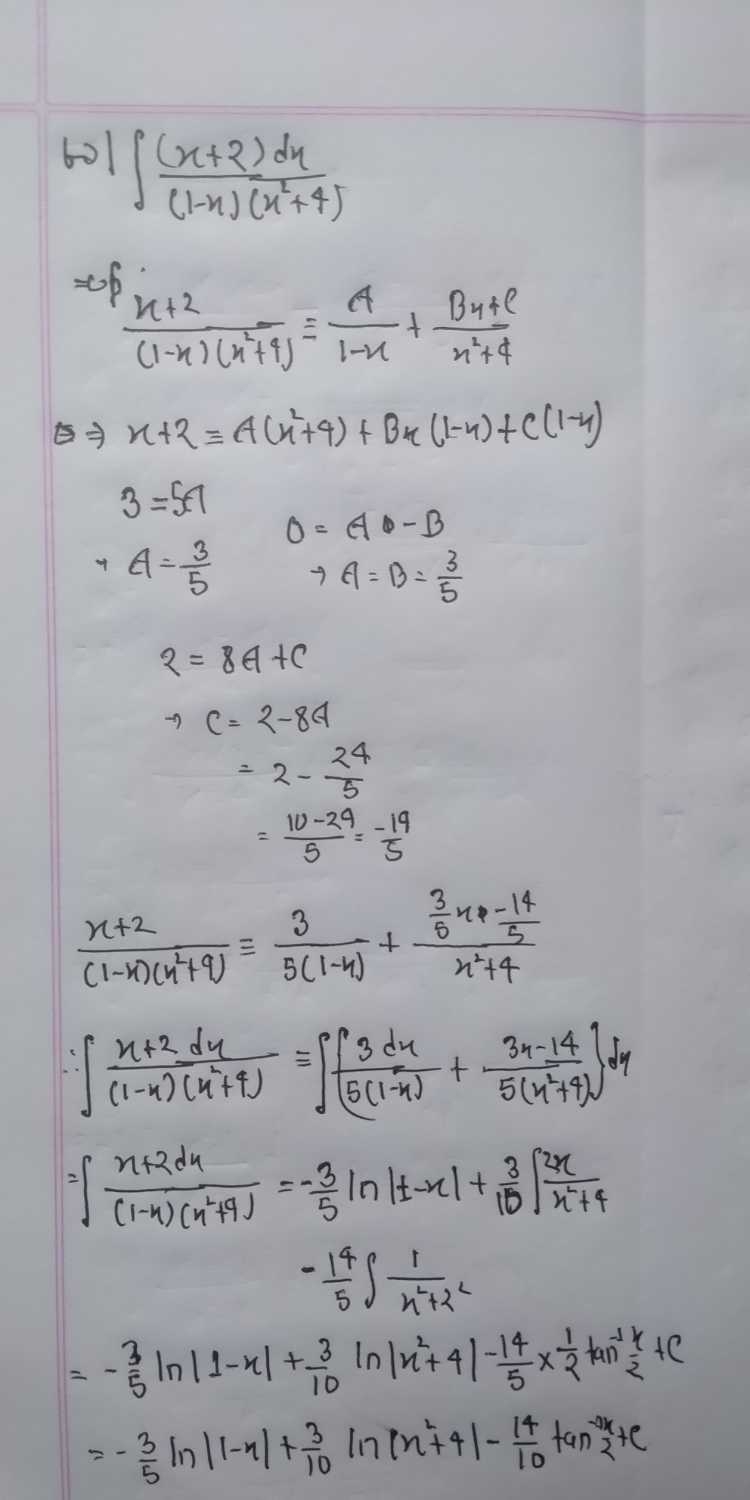 60| ∫ (x+2)dx / (1-x)(x²+4)
x+2 / (1-x)(x²+4) ≡ A / 1-x + Bx+C / x²+4
⇒ x+2 ≡ A(x²+4) + Bx(1-x) + C(1-x)
3 = 5A
0 = A - B
→ A = 3/5
→ A = B = 3/5
2 = 8A + C
→ C = 2-8A
= 2 - 24/5
= 10-24 / 5 = -14/5
x+2 / (1-x)(x²+4) ≡ 3 / 5(1-x) + 3/5 x - 14/5 / x²+4
∴ ∫ x+2 dx / (1-x)(x²+4) ≡ ∫{ 3 dx / 5(1-x) + 3x-14 / 5(x²+4) } dx
= ∫ x+2 dx / (1-x)(x²+4) = -3/5 ln|1-x| + 3/10 ∫ 2x / x²+4
- 14/5 ∫ 1 / x²+2²
= -3/5 ln|1-x| + 3/10 ln|x²+4| - 14/5 × 1/2 tan⁻¹ x/2 + C
= -3/5 ln|1-x| + 3/10 ln|x²+4| - 14/10 tan⁻¹ x/2 + C